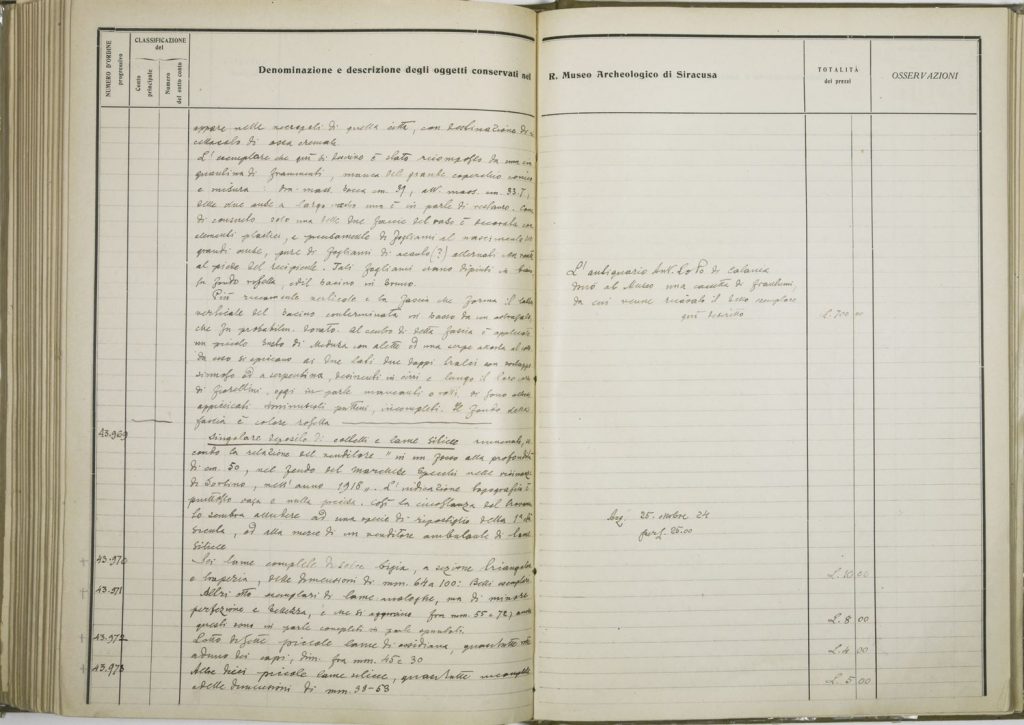 NUMERO D'ORDINE
progressivo
CLASSIFICAZIONE
del
Conto
principale
Numero
del sotto conto
Denominazione e descrizione degli oggetti conservati nel R. Museo Archeologico di Siracusa
TOTALITÀ
dei prezzi
OSSERVAZIONI
nelle necropoli di quella città, con destinazione di
di ossa cremate.
L'esemplare che qui si è stato ricomposto da una
di frammenti, manca del grande coperchio conico
e misura: bocca cm. 39, alt. mass. cm. 33.5,
delle due anse a largo una è in parte di restauro. Come
di consueto solo una delle due faccie del vaso è decorata con
elementi plastici, e precisamente di fogliami al nascimento delle
grandi anse, pure di fogliami di acanto (?) alternati
al piede del recipiente. Tali fogliami erano dipinti
fondo rosetta, ed il bacino in bruno.
Più riccamente è la fascia che forma il
verticale del bacino conterminata in basso da un
che fu probabilm. dorato. Al centro di detta fascia è applicato
un piccolo busto di Medusa con alette ed una serpe
da esso si spiccano ai due lati due doppi tralci con
ad a serpentina, desinenti in cirri e lungo il loro
di fiorellini, oggi in parte mancanti o rotti, si sono
appiccicati puttini, incompleti. Il fondo della
fascia è colore rosetta
43.969
Singolare deposito di coltelli e lame silicee rinvenute,
la relazione del venditore "in un fosso alla profondità
di cm. 50, nel feudo del Marchese Specchi nelle vicinanze
di Sortino, nell'anno 1918". L'indicazione topografica è
piuttosto vaga e nulla precisa. Così la circostanza del
sembra alludere ad una specie di ripostiglio della 1ª età
Sicula, od alla merce di un venditore ambulante di lame
silicee
43.970
Sei lame complete di selce bigia, a sezione triangolare
e trapezia, delle dimensioni di mm. 64 a 100: Belli esemplari
43.971
Altri otto esemplari di lame analoghe, ma di minore
perfezione e bellezza, fra mm. 55 e 72; anche
questi sono in parte completi in parte spuntati.
43.972
Lotto di sette piccole lame di ossidiana, quasi tutte
ad uno dei capi, dim. fra mm. 45 e 30
43.973
Altre dieci piccole lame silicee, quasi tutte incomplete
delle dimensioni di mm. 39-53
L'antiquario Ant. Lo Pò di Catania
donò al Museo una cassetta di frammenti,
da cui venne ricavato il esemplare
qui descritto
L. 700 00
Acq. 25 ottobre 24
per L. 25.00
L. 10 00
L. 8 00
L. 4 00
L. 5 00